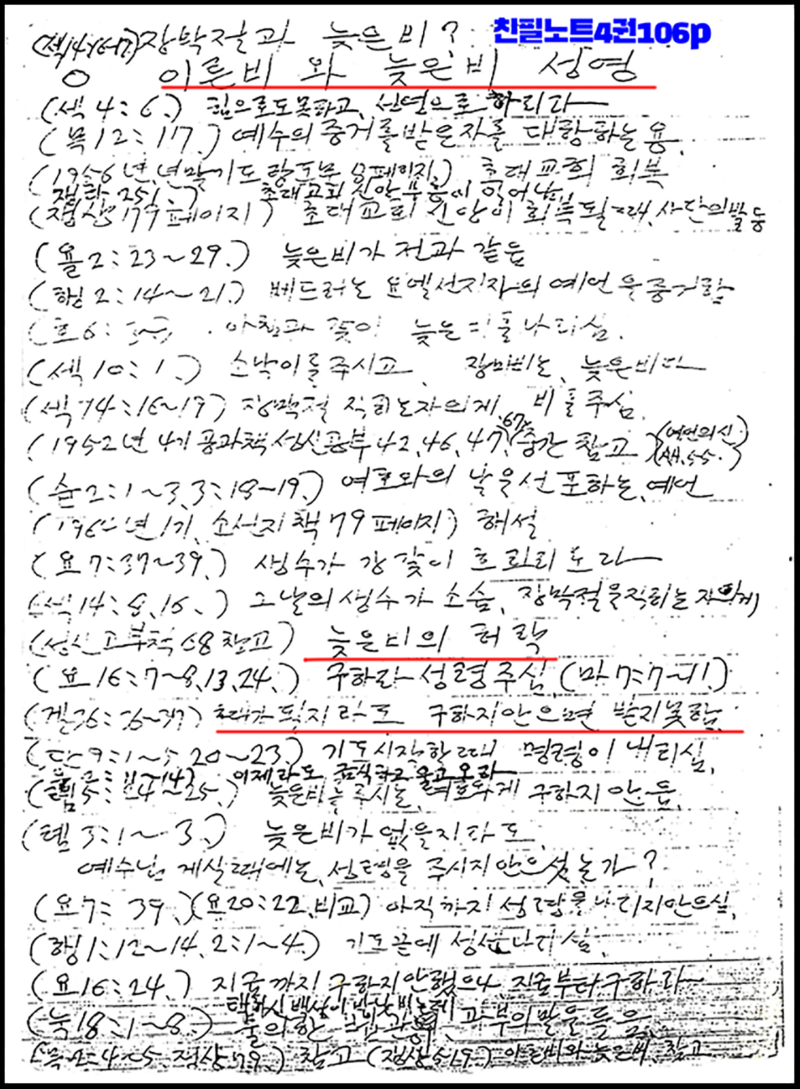 친필노트4권106p
(섹14:16-17)장박절과 늦은비?
이른비 와 늦은비 성영
(섹4:6.) 힘으로도못하고, 신연으로 하리라
(묵12:17.) 예수의 증거를받은자를 대항하는용.
(1956년 년말기도 페이지.) 초대교회 회복
251 초대교회 신앙부흥이 일어남
(잽상179페이지) 초대교회 신앙이 회복될때, 사단의발동
(욜2:23~29.) 늦은비가 전과 같음
(행2:14~21.) 베드러는 요엘선지자의 예언을증거함
(호6: 늦은비를나리심.
(섹10:1.) 소낙이를주시고 장마비는, 늦은비다
(섹14:16~17) 장막절 직히는자의게 비를주심.
(1952년4기공과책성신공부42,46,47,67,중간참고)
(습2:1~3,3:18~19.) 여호와의 날을선포하는,예언
년1기, 책79페이지) 해설
(요7:37~39.) 생수가 강같이 흐르리로라
(섹14:8,16.) 그날의생수가 소슴, 장막절을직히는 자의게
68참고) 늦은비의허락
(요16:7~8,13,24.) 구하라성령주심(마7:7~11.)
(겔36:36~37) 때가되지라도 구하지안으면 받지못함.
(단9:1~ 20~23.) 기도시작할때 명령이 내리심,
이제라도 금식하고 울고오라
5:24~25.) 늦은비를주시는,여호와께 구하지안음,
(렘3:1~3.) 늦은비가없을지라도
예수님 게실때에는, 성령을 주시지안으셧는가?
(요7:39.)(요20:22,비교) 아직까지 성령을나리지안으심,
(행1:12~14,2:1~4.) 기도끝에성신나리심.
(요16:24.) 지금까지구하지안했으나,지금부터구하라
택하신백성이밤낮비는데
(눅18:1~8.) 불의한 과부의말을들음,
참고 이른비와늦은비, 참고